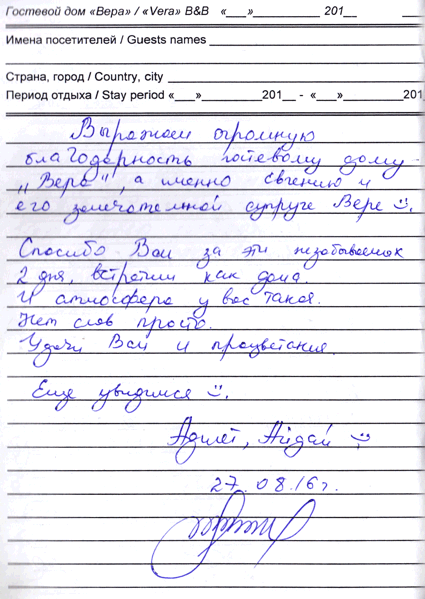 Гостевой дом «Вера» / «Vera» B&B «___»__________ 201__
Имена посетителей / Guests names
Страна, город / Country, city
Период отдыха / Stay period «___»__________201__ - «___»__________201
Выражаем огромную
благодарность гостевому дому
"Вера", а именно Евгению и
его замечательной супруге Вере :).
Спасибо Вам за эти незабываемых
2 дня, встретили как дома.
И атмосфера у вас такая.
Нет слов просто.
Удачи Вам и процветания.
Еще увидимся :).
Адилет, Айдай :)
27.08.16г.